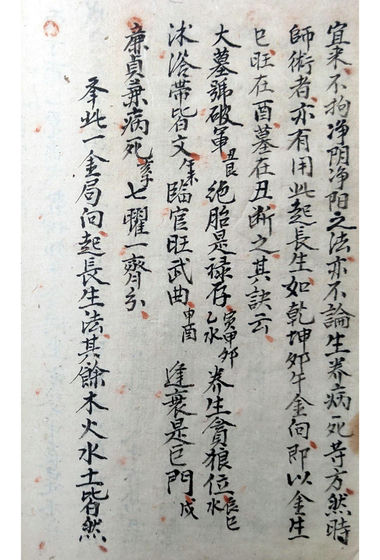 宜来不拘净阴净阳之法亦不論生养病死等方然時
師術者亦有用此起長生如乾坤夘午金向即以金生
巳旺在酉墓在丑断之其訣云
大墓號破軍丑艮 絶胎是禄存寅甲夘乙水 养生貪狼位辰巳水
沐浴帶皆文午未 臨官旺武曲甲酉 逢衰是巨門戌
廉貞兼病死亥子 七曜一齊分
此一金局向起長生法其餘木火水土皆然